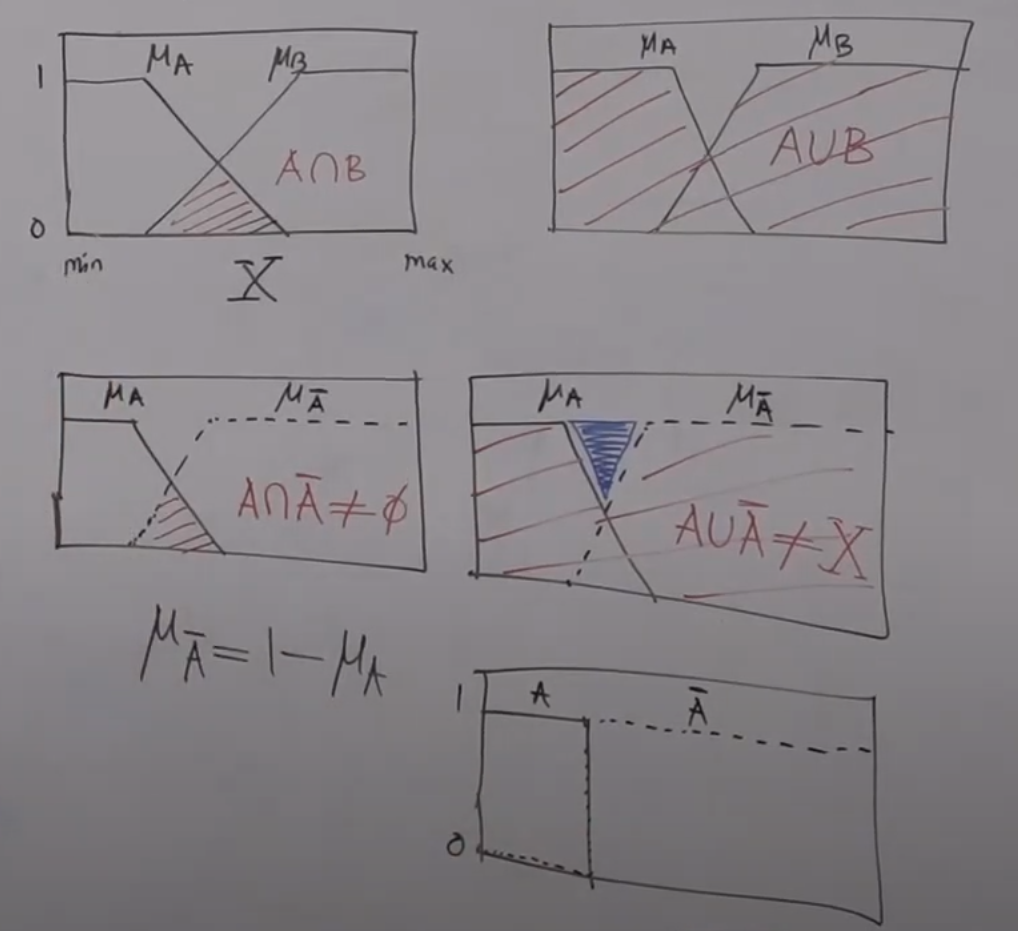 μA μB
1
A∩B
0
min X max
μA μB
A∪B
μA μĀ
A∩Ā≠ϕ
μA μĀ
A∪Ā≠X
μĀ=1-μA
1 A Ā
0